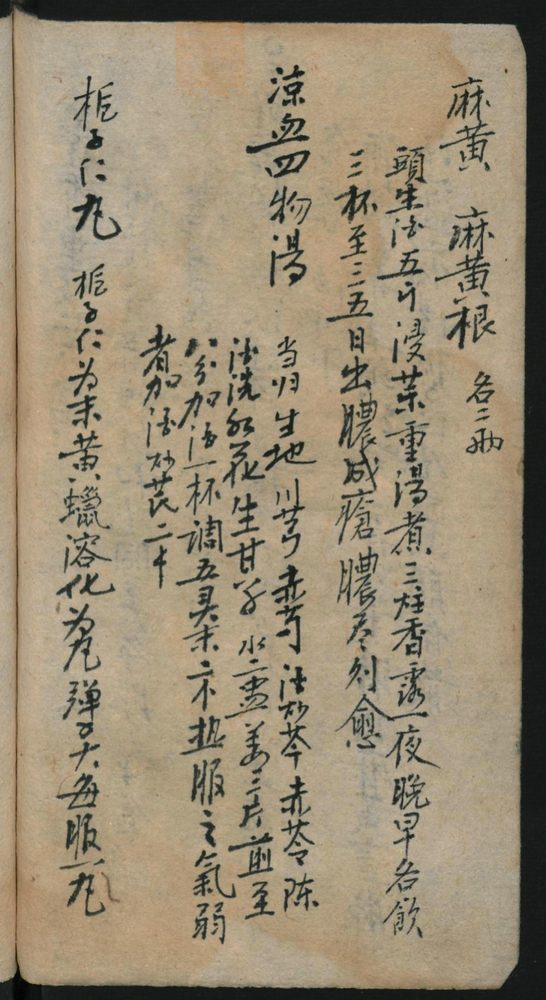 麻黄 麻黄根 各二两
頭生酒五斤浸薬重湯煮三炷香露一夜晚早各飲
三杯至三五日出膿成瘡膿尽則愈
涼血四物湯
当归 生地 川芎 赤芍 酒炒芩 赤苓 陈
酒洗红花 生甘草 水二盅姜三片煎至
八分加酒一杯調五灵末二不热服之氣弱
者加酒炒芪二不
栀子仁丸 栀子仁为末黄蠟溶化为丸弾子大每服一丸